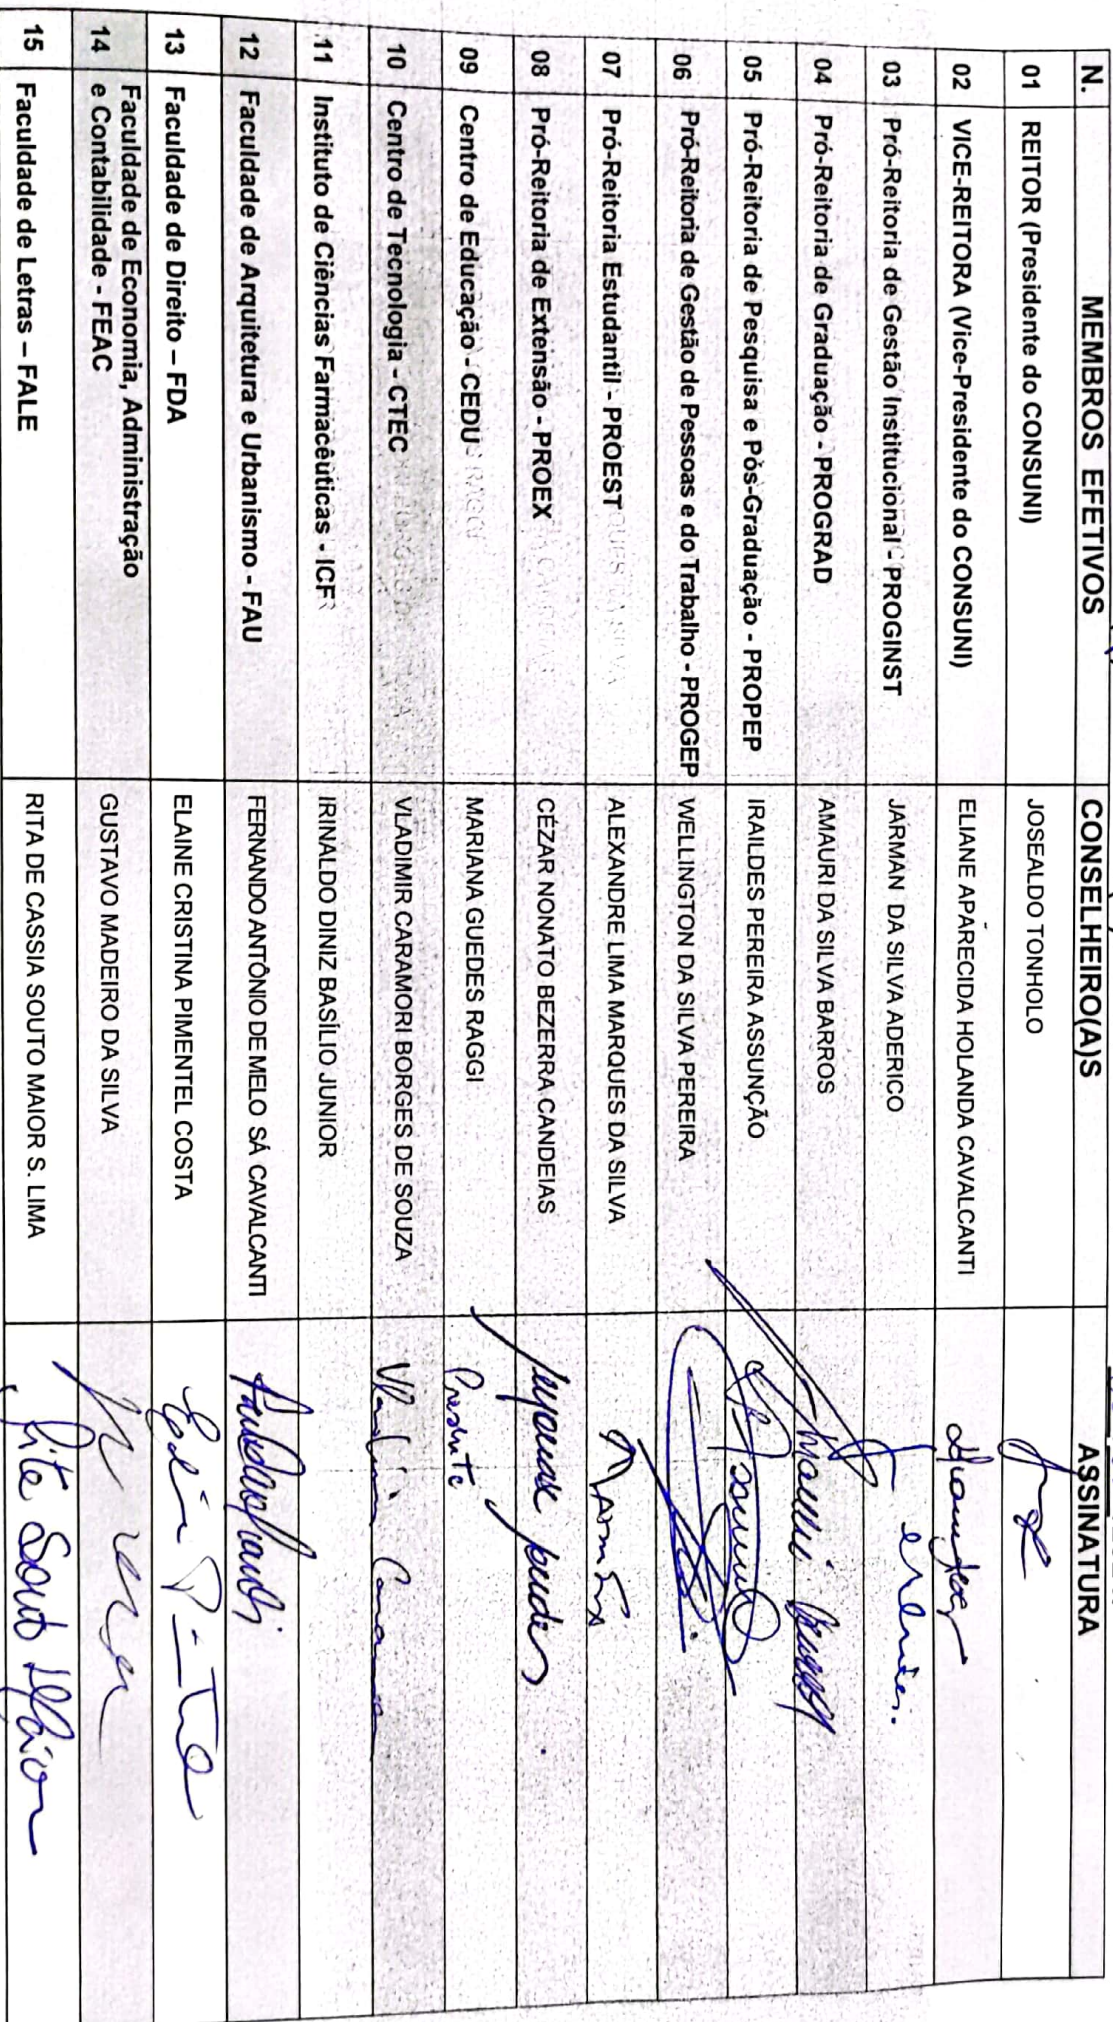 N. MEMBROS EFETIVOS CONSELHEIRO(A)S ASSINATURA
01 REITOR (Presidente do CONSUNI) JOSEALDO TONHOLO
02 VICE-REITORA (Vice-Presidente do CONSUNI) ELIANE APARECIDA HOLANDA CAVALCANTI
03 Pró-Reitoria de Gestão Institucional - PROGINST JARMAN DA SILVA ADERICO
04 Pró-Reitoria de Graduação - PROGRAD AMAURI DA SILVA BARROS
05 Pró-Reitoria de Pesquisa e Pós-Graduação - PROPEP IRAILDES PEREIRA ASSUNÇÃO
06 Pró-Reitoria de Gestão de Pessoas e do Trabalho - PROGEP WELLINGTON DA SILVA PEREIRA
07 Pró-Reitoria Estudantil - PROEST ALEXANDRE LIMA MARQUES DA SILVA
08 Pró-Reitoria de Extensão - PROEX CÉZAR NONATO BEZERRA CANDEIAS
09 Centro de Educação - CEDU MARIANA GUEDES RAGGI
10 Centro de Tecnologia - CTEC VLADIMIR CARAMORI BORGES DE SOUZA Vladimir
11 Instituto de Ciências Farmacêuticas - ICF IRINALDO DINIZ BASÍLIO JUNIOR
12 Faculdade de Arquitetura e Urbanismo - FAU FERNANDO ANTÔNIO DE MELO SÁ CAVALCANTI
13 Faculdade de Direito – FDA ELAINE CRISTINA PIMENTEL COSTA
14 Faculdade de Economia, Administração
e Contabilidade - FEAC GUSTAVO MADEIRO DA SILVA
15 Faculdade de Letras – FALE RITA DE CASSIA SOUTO MAIOR S. LIMA Rita Souto Maior